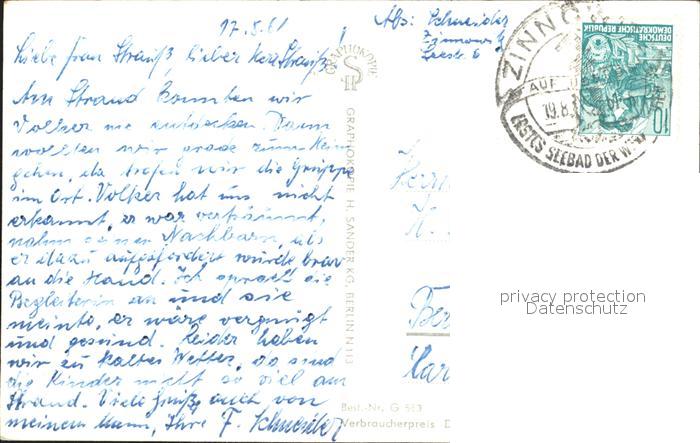 17.8.61
Abs: Schneider
Zinnowitz
Seestr. 6
Liebe Frau Strauß, lieber Herr Strauß,
Am Strand konnten wir
Volker nie entdecken. Dann
wollten wir grade zum Heim
gehen, da trafen wir die Gruppe
im Ort. Volker hat uns nicht
erkannt, er war verträumt,
nahm seinen Nachbarn, als
er dazu aufgefordert wurde brav
an die Hand. Ich sprach die
Begleiterin an und sie
meinte, er wäre vergnügt
und gesund. Leider haben
wir zu kaltes Wetter, da sind
die Kinder nicht so viel am
Strand. Viele Grüße auch von
meinem Mann, Ihre F. Schneider
GRAPHOKOPIE
GRAPHOKOPIE H. SANDER KG, BERLIN N 113
Best.-Nr. G 563
Verbraucherpreis D
ZINNO
AUF
19.8.
ERSTES SEEBAD DER W
DEUTSCHE
DEMOKRATISCHE REPUBLIK
10
Herrn
Ber
Kar
privacy protection
Datenschutz